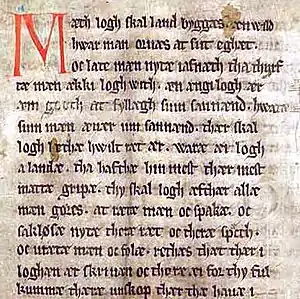 Mæth logh skal land byggas. æn wild
hwær man oruæs at sit eghæt.
oc late mæn nytæ iafnæth tha thurf
tæ mæn ækki logh with. æn ængi logh ær
æm gooth at fyllægh sum sannænd. hwaræ
sum mæn æuer um sannænd. thær skal
logh letæ hwilt ræt ær. waræ æi logh
a landæ. tha hafthæ hin mest thær mest
mattæ gripæ. thy skal logh æfthær allæ
mæn gøres. at rætæ mæn oc spakæ. oc
sakløsæ nytæ theræ ræt oc theræ spæth.
oc urætæ mæn oc folæ. rethæs thæt thær i
loghæn ær skriuan oc thoræ æi for thy ful
kummæ theræ unskop thær the hauæ i